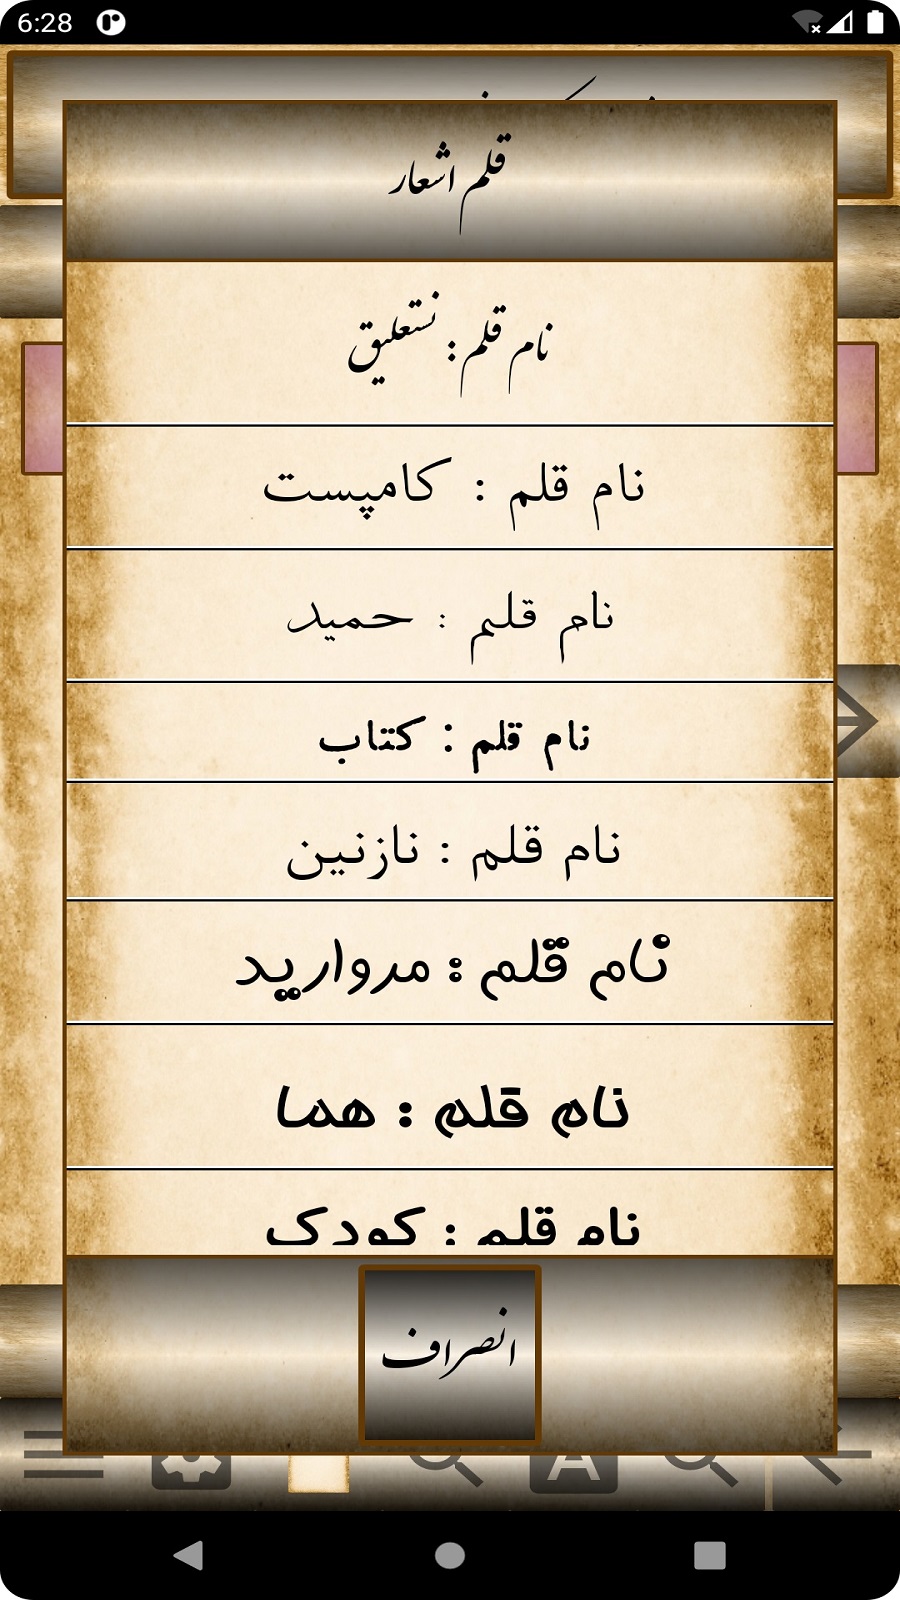 6:28
قلم اشعار
نام قلم : نستعلیق
نام قلم : کامپست
نام قلم : حمید
نام قلم : کتاب
نام قلم : نازنین
نام قلم : مروارید
نام قلم : هما
نام قلم : کودک
انصراف
A